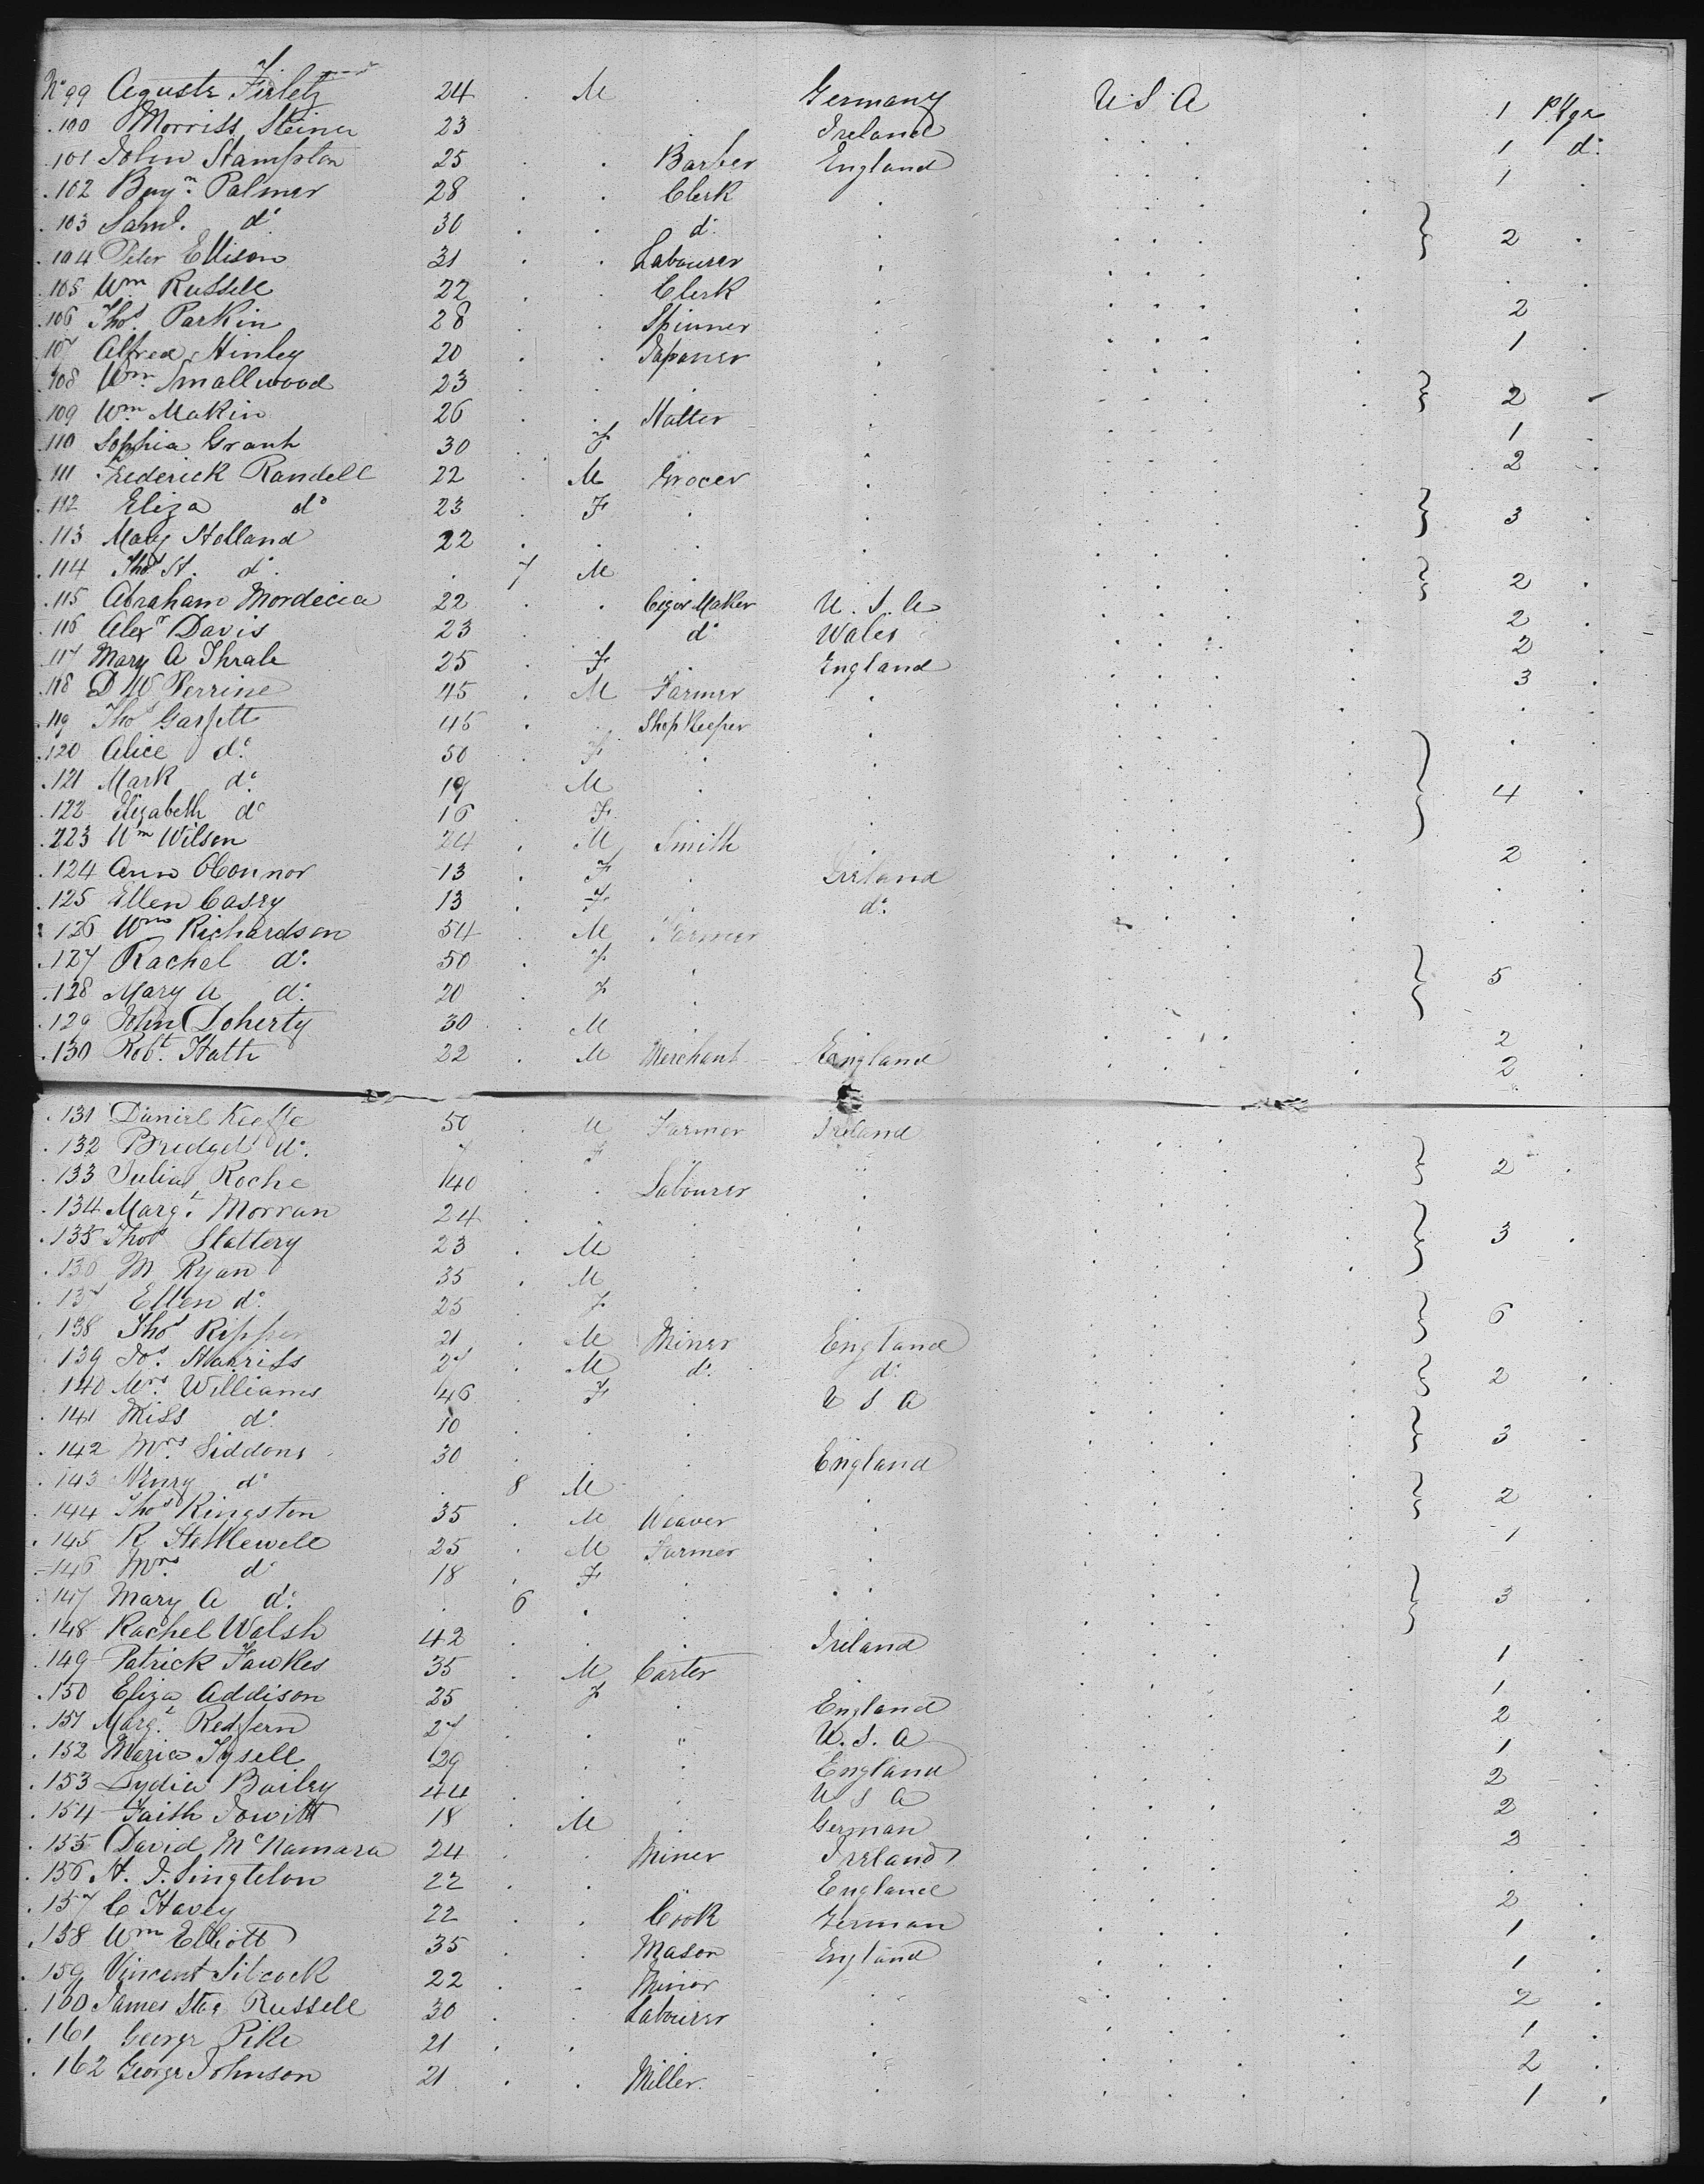 No 99 Aguste Firletz 24 . M . Germany U.S.A . 1 Pkge
.100 Morriss Steiner 23 Ireland . . . . 1 do
.101 John Stampton 25 . . Barber England . . . . 1 .
.102 Benjn. Palmer 28 . . Clerk . . . . .
.103 Saml. do 30 . . do . . . . . } 2 .
.104 Peter Ellison 31 . . Labourer . . . . . . .
.105 Wm Russell 22 . . Clerk . . . . . 2
.106 Thos. Parkin 28 . . Spinner . . . . . 1 .
.107 Alfred Hinley 20 . . Japaner . . . . .
.108 Wm. Smallwood 23 . . . . . . . } 2
.109 Wm Makin 26 . . Hatter . . . . . 1 .
.110 Sophia Grant 30 . F . . . . . 2 .
.111 Frederick Randell 22 . M Grocer . . . . .
.112 Eliza do 23 . F . . . . . . } 3 .
.113 Mary Holland 22 . . . . . . . .
.114 Thos H. do . 7 M . . . . . . } 2 .
.115 Abraham Mordecia 22 . . Cigar Maker U.S.A . . . . 2 .
.116 Alexr Davis 23 . . do Wales . . . . 2 .
.117 Mary A Thrale 25 . F . England . . . . 3 .
.118 D W Perrine 45 . M Farmer . . . . . . .
.119 Thos Garfitt 45 . . Shop Keeper . . . . . . .
.120 Alice do. 50 . F . . . . . .
.121 Mark do. 19 M . . . . . . } 4 .
.122 Elizabeth do 16 . F . . . . . .
.223 Wm Wilson 24 . M Smith . . . . . 2 .
.124 Ann OConnor 13 . F . Ireland . . . . . .
.125 Ellen Casey 13 . F . do. . . . . . .
.126 Wm Richardson 54 . M Farmer . . . . .
.127 Rachel do. 50 . F . . . . . . } 5 .
.128 Mary A do. 20 . F . . . . . .
.129 John Doherty 30 . M . . . . . . 2 .
.130 Robt. Hatt 22 . M Merchant England . . . . 2 .
.131 Daniel Keeffe 50 . M Farmer Ireland . . . .
.132 Bridget do. . F . . . . . } 2 .
.133 Julia Roche 40 . . Labourer . . . . .
.134 Margt. Morran 24 . . . . . . . .
.135 Thos Slattery 23 . M . . . . . . } 3 .
.136 M Ryan 35 . M . . . . . .
.137 Ellen do. 25 . F . . . . . . } 6 .
.138 Thos Ripper 21 . M Miner England . . . .
.139 Jos. Harriss 27 . M do. do. . . . . } 2 .
.140 Mrs. Williams 46 . F . U S A . . . .
.141 Miss do. 10 . . . . . . . } 3 .
.142 Mrs. Siddons 30 . . . England . . . .
.143 Henry do . 8 M . . . . . } 2 .
.144 Thos Kingston 35 . M Weaver . . . . . 1 .
.145 R Stettlewell 25 . M Farmer . . . . .
.146 Mrs. do 18 . F . . . . . .
.147 Mary A do. . 6 . . . . . . . } 3 .
.148 Rachel Walsh 42 . . . Ireland . . . .
.149 Patrick Fawkes 35 . M Carter . . . . . 1 .
.150 Eliza Addison 25 . F . England . . . . 1 .
.151 Margt. Redfern 27 . . " U.S.A . . . . 2 .
.152 Maria Tysell 29 . . . England . . . . 1 .
.153 Lydia Bailey 44 . . . U S A . . . . 2 .
.154 Faith Jowitt 18 . M . German . . . . 2 .
.155 David McNamara 24 . . Miner Ireland . . . . 2 .
.156 H. J. Singtelon 22 . . England . . . . . .
.157 C Havey 22 . . Cook German . . . . 2 .
.158 Wm Elliott 35 . . Mason England . . . . 1 .
.159 Vincent Silcock 22 . . Miner . . . . . 1 .
.160 James Russell 30 . . Labourer . . . . . 2 .
.161 George Pike 21 . . . . . . . . 1 .
.162 George Johnson 21 . . Miller . . . . . 2 .
1 .